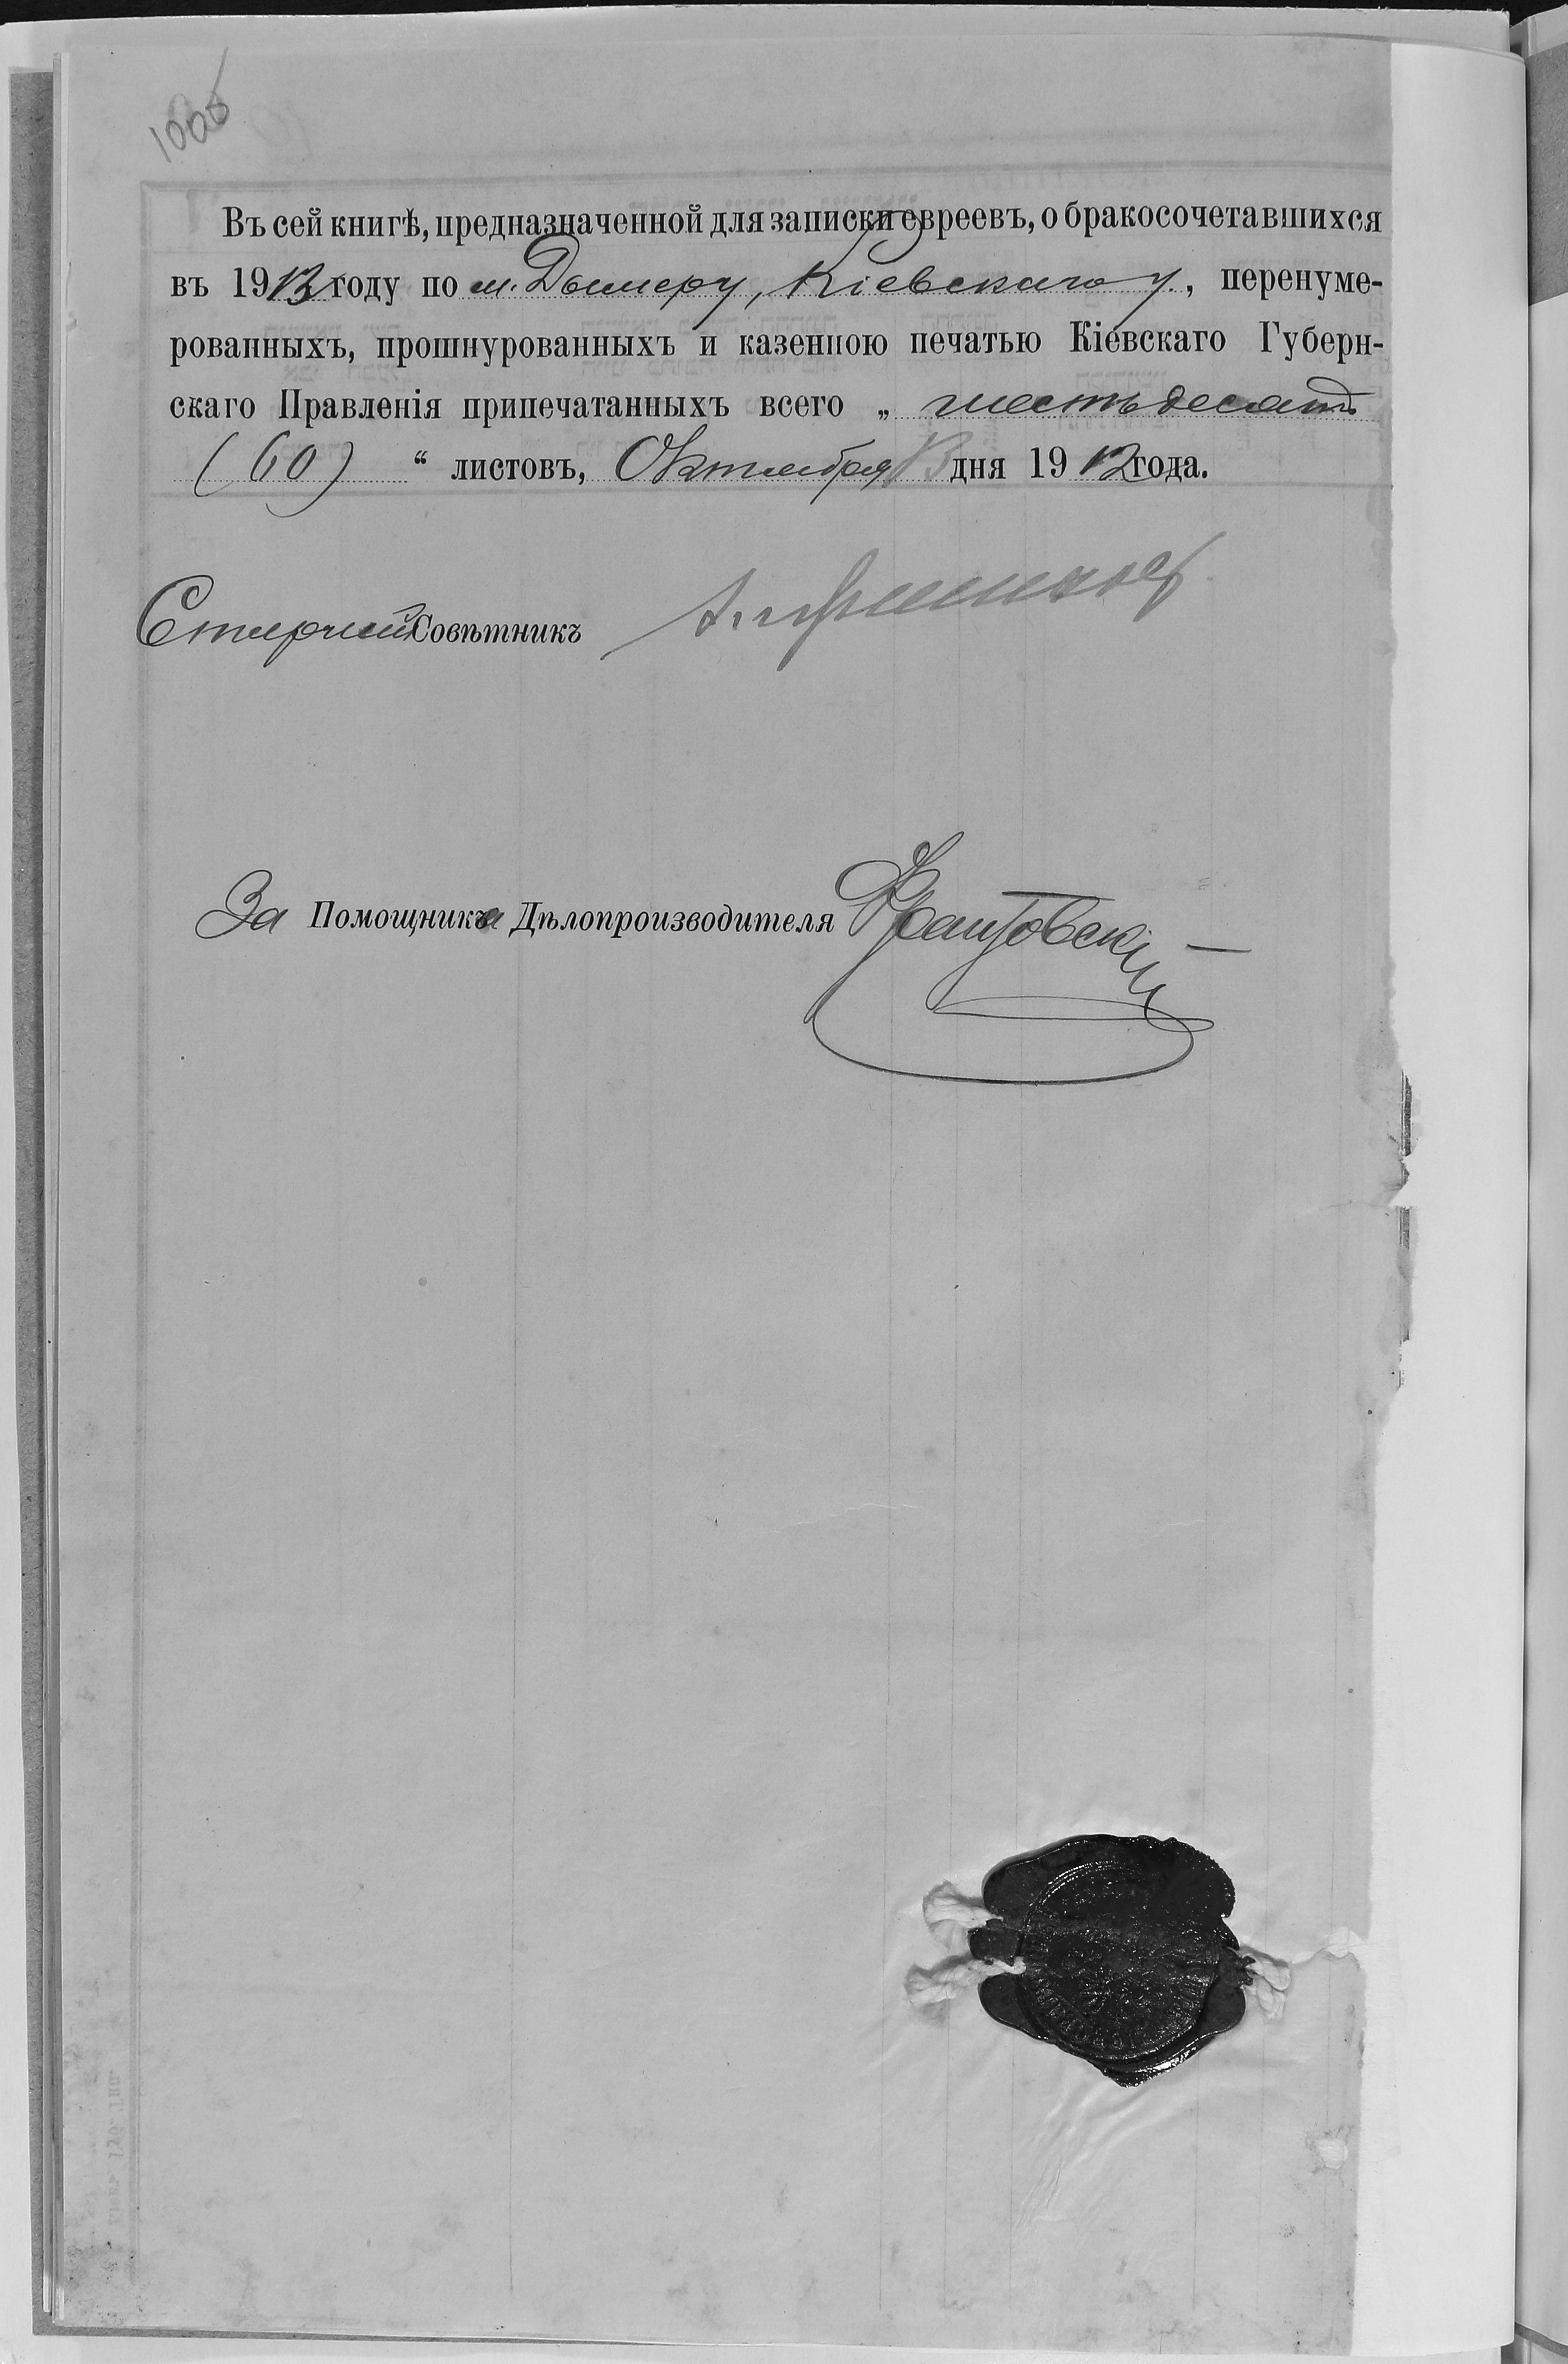 100об
Въ сей книгѣ, предназначенной для записки евреевъ, о бракосочетавшихся
въ 1913 году по м. Дымеру, Кіевскаго у., перенуме-
рованныхъ, прошнурованныхъ и казенною печатью Кіевскаго Губерн-
скаго Правленія припечатанныхъ всего „ шестьдесятъ
(60) “ листовъ, Октября 13 дня 1912 года.
Старшій Совѣтникъ
За Помощника Дѣлопроизводителя